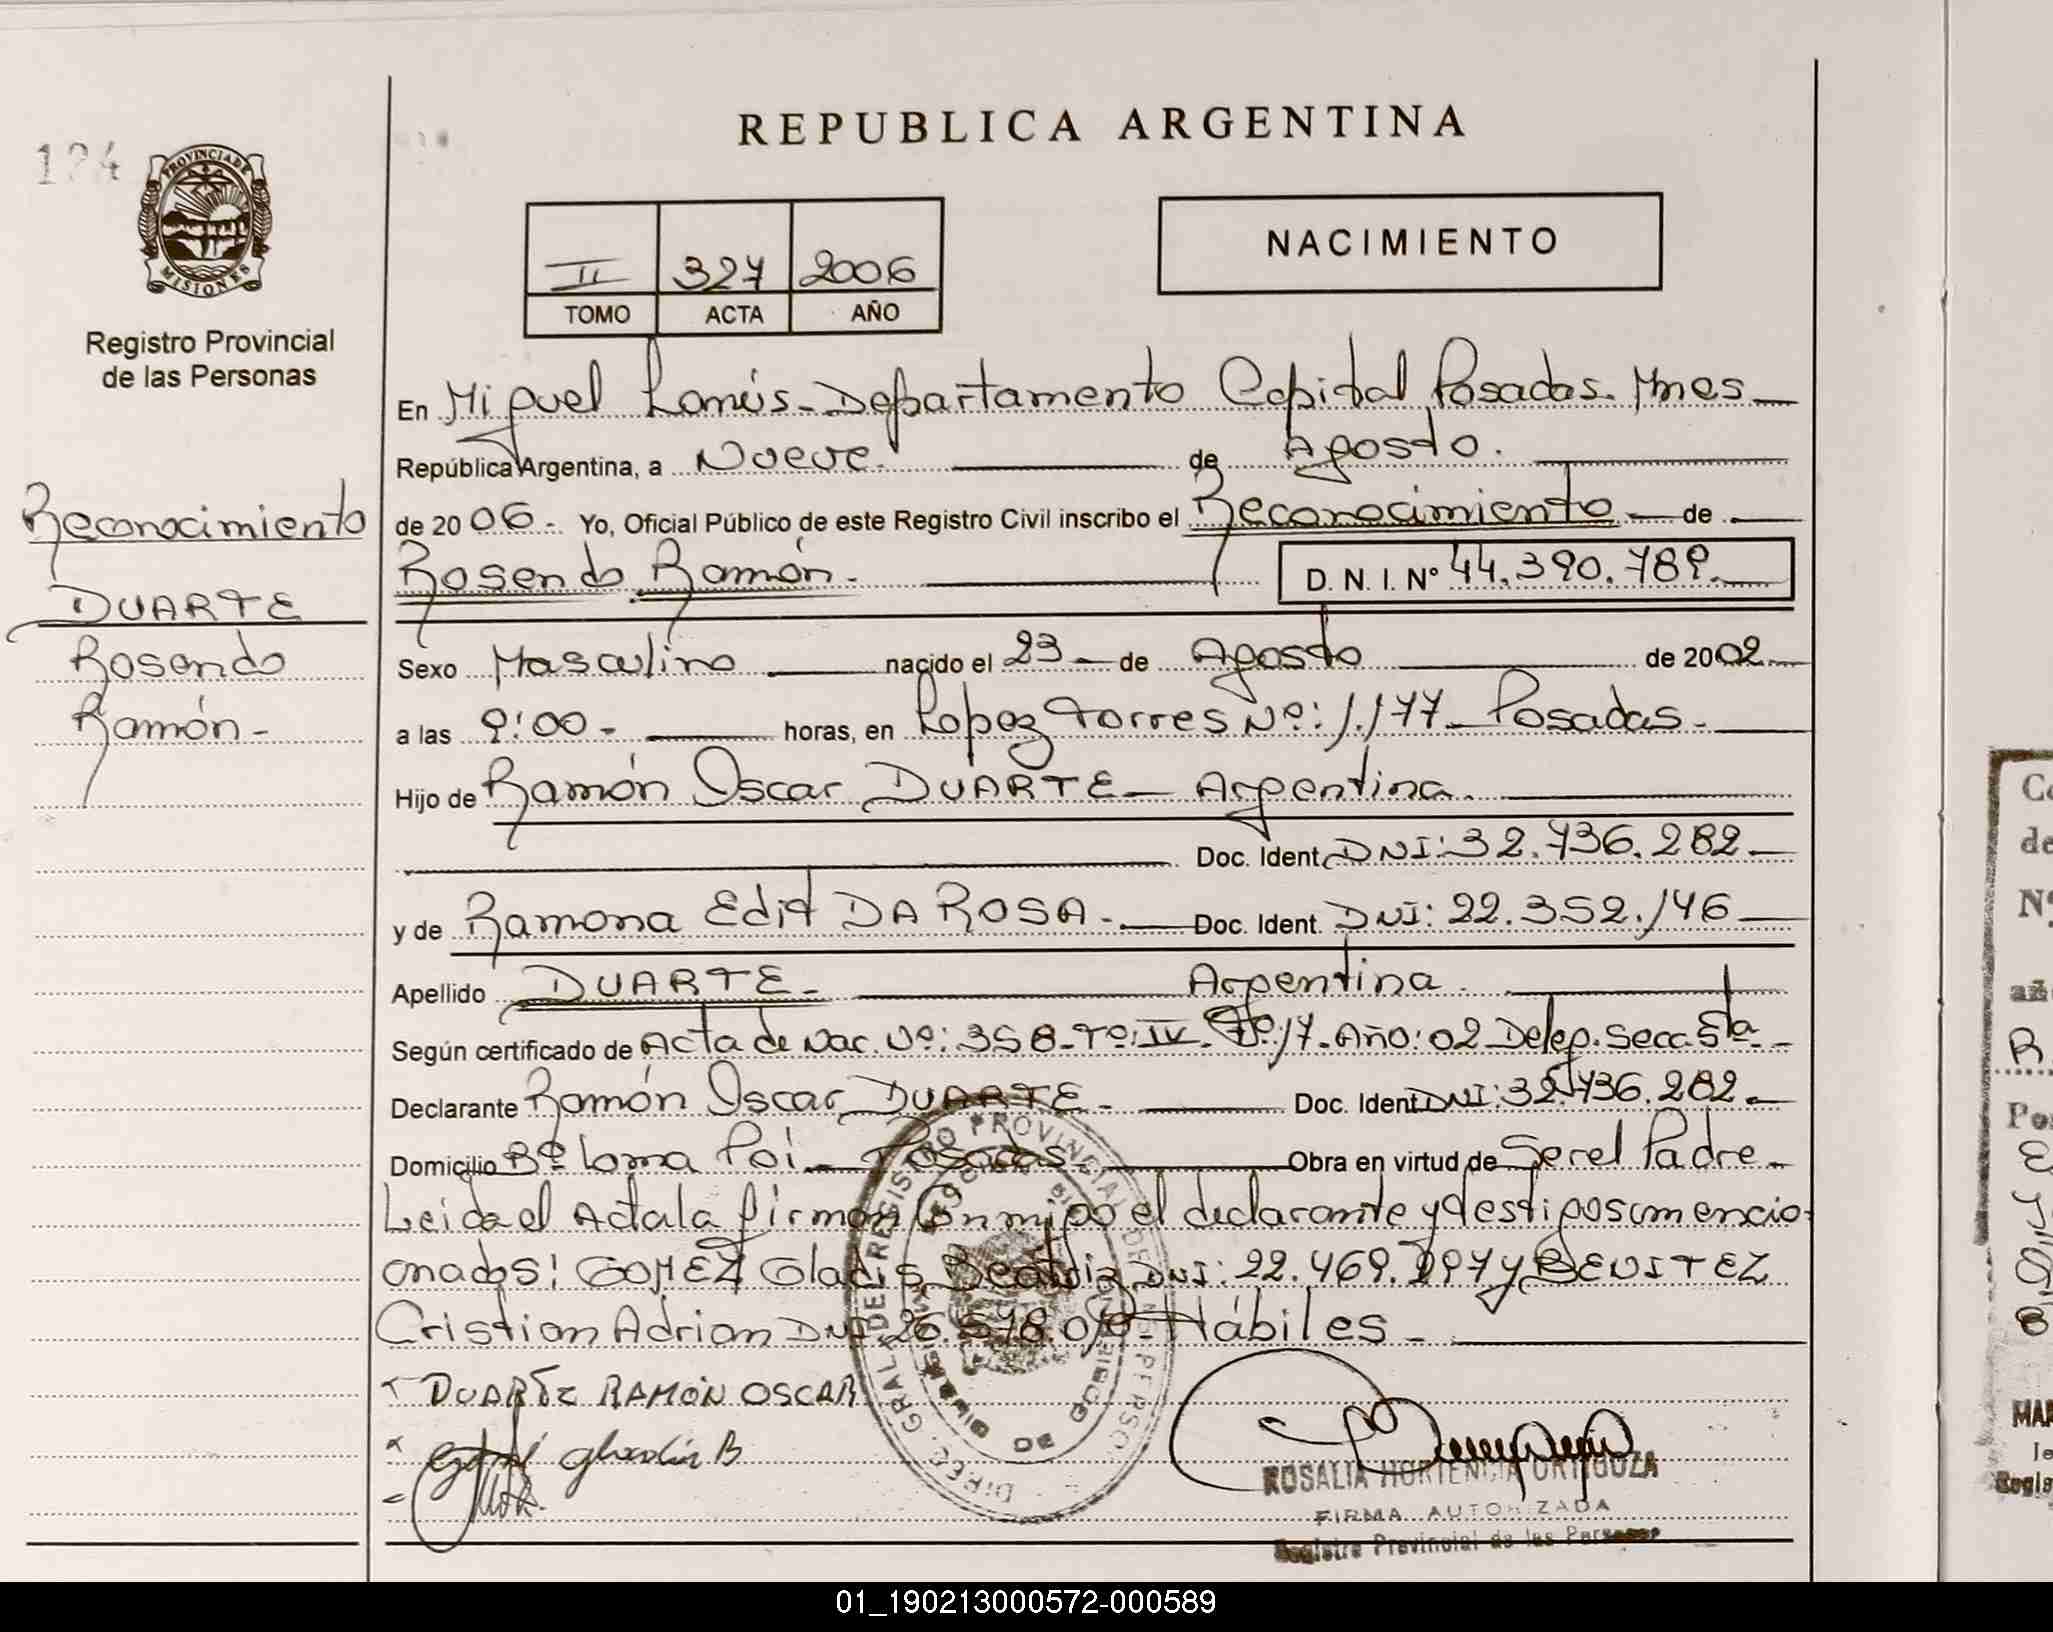 REPUBLICA ARGENTINA
124
PROVINCIA DE
MISIONES
Registro Provincial
de las Personas
II 327 2006
TOMO ACTA AÑO
NACIMIENTO
En Miguel Lanús - Departamento Capital Posadas. Mnes
República Argentina, a Nueve. de Agosto.
de 2006.- Yo, Oficial Público de este Registro Civil inscribo el Reconocimiento de
Rosendo Ramón. D. N. I. Nº 44.390.789.
Sexo Masculino nacido el 23 de Agosto de 2002
a las 9:00 - horas, en Lopez Torres Nº: 1.177 - Posadas -
Hijo de Ramón Oscar DUARTE - Argentina.
Doc. Ident. DNI: 32.736.282
y de Ramona Edit DA ROSA. Doc. Ident. DNI: 22.352.146
Apellido DUARTE - Argentina.
Según certificado de Acta de Nac. Nº: 358-Tº: IV. Fº: 17. Año: 02 Deleg. Secc. 5ta
Declarante Ramón Oscar DUARTE - Doc. Ident. DNI: 32.736.282
Domicilio Bº Loma Poi - Posadas. Obra en virtud de Ser el Padre
Leida el Acta la firman conmigo el declarante y testigos mencio
onados: GOMEZ Gladis Beatriz DNI: 22.469. y BENITEZ
Cristian Adrian DNI Hábiles -
DUARTE RAMÓN OSCAR
B
ROSALIA HORTENCIA ORTIGOZA
FIRMA AUTORIZADA
Registro Provincial de las Personas
DIREC. GRAL. DE REGISTRO PROVINCIAL DE PERSO
Reconocimiento
DUARTE
Rosendo
Ramón -
Co
de
Nº
añ
R
Po
E
B
MAR
Regis
01_190213000572-000589